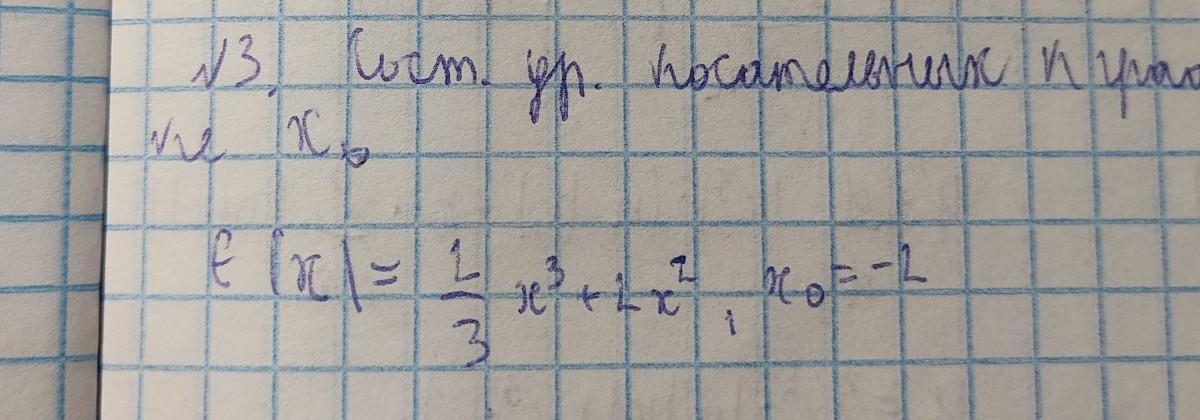 №3. Сост. ур. касательных к
x₀
f(x) = 1/3 x³ + 1x², x₀ = -1